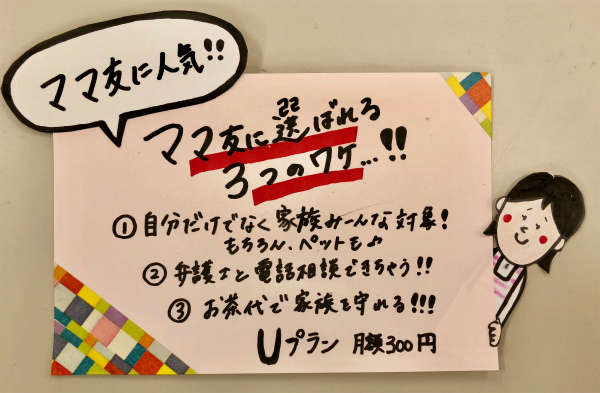 ママ友に人気!!
ママ友に選ばれる
3つのワケ...!!
① 自分だけでなく家族みーんな対象!
もちろん、ペットも♪
② 弁護士と電話相談できちゃう!!
③ お茶代で家族を守れる!!!
Uプラン 月額300円